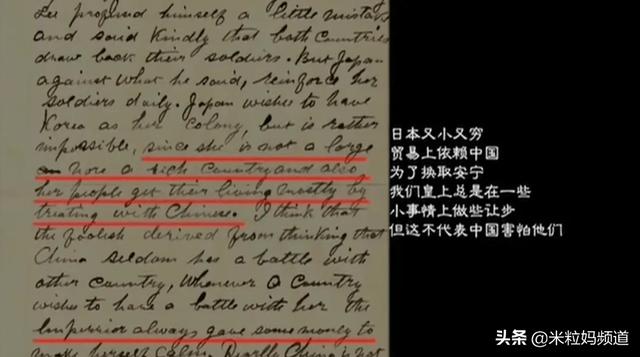 Lee profund himself a little mistake
and said kindly that both Countries
draw back their soldiers. But Japan
against what he said, reinforce her
soldiers daily. Japan wishes to have
Korea as her Colony, but is rather
impossible, since she is not a large
nore a rich Country and also
her people get their living mostly by
treating with Chinese. I think that
the foolish derived from thinking that
China seldom has a battle with
other Country, Whenever a Country
wishes to have a battle with her the
Imperrior always gave some money to
make herself calm. China is not
日本又小又穷
贸易上依赖中国
为了换取安宁
我们皇上总是在一些
小事情上做些让步
但这不代表中国害怕他们
头条 @米粒妈频道